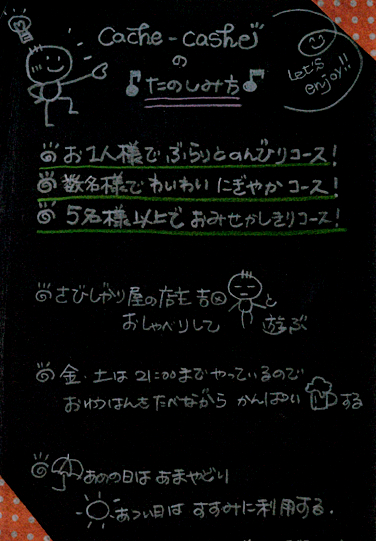 cache-cashej
の
たのしみ方
Let's
enjoy!!
お1人様で ぶらりとのんびりコース!
数名様で わいわい にぎやか コース!
5名様以上で おみせかしきりコース!
さびしがり屋の店主 吉 と
おしゃべりして 遊ぶ
金・土は 21:00までやっているので
おゆうはんをたべながら かんぱい する
あめの日は あまやどり
あつい日は すずみに利用する.